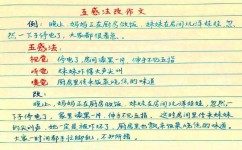 五感法改作文
例：晚上，妈妈正在厨房做饭，妹妹在房间玩洋娃娃，忽
然一下子停电了，大家都很着急。
五感法：
视觉 停电了，房间漆黑一片，伸手不见五指
听觉 妹妹吓得大声尖叫
嗅觉 厨房里传来饭菜烧焦的味道
改：
晚上，妈妈正在厨房做饭，妹妹在房间玩洋娃娃，忽然，一
下子停电了，房间漆黑一片，伸手不见五指。这时房间里传来妹妹
的尖叫声，她一定被吓坏了，厨房里也飘来饭菜烧焦的味道，
大家一时间都手忙脚乱，不知所措。